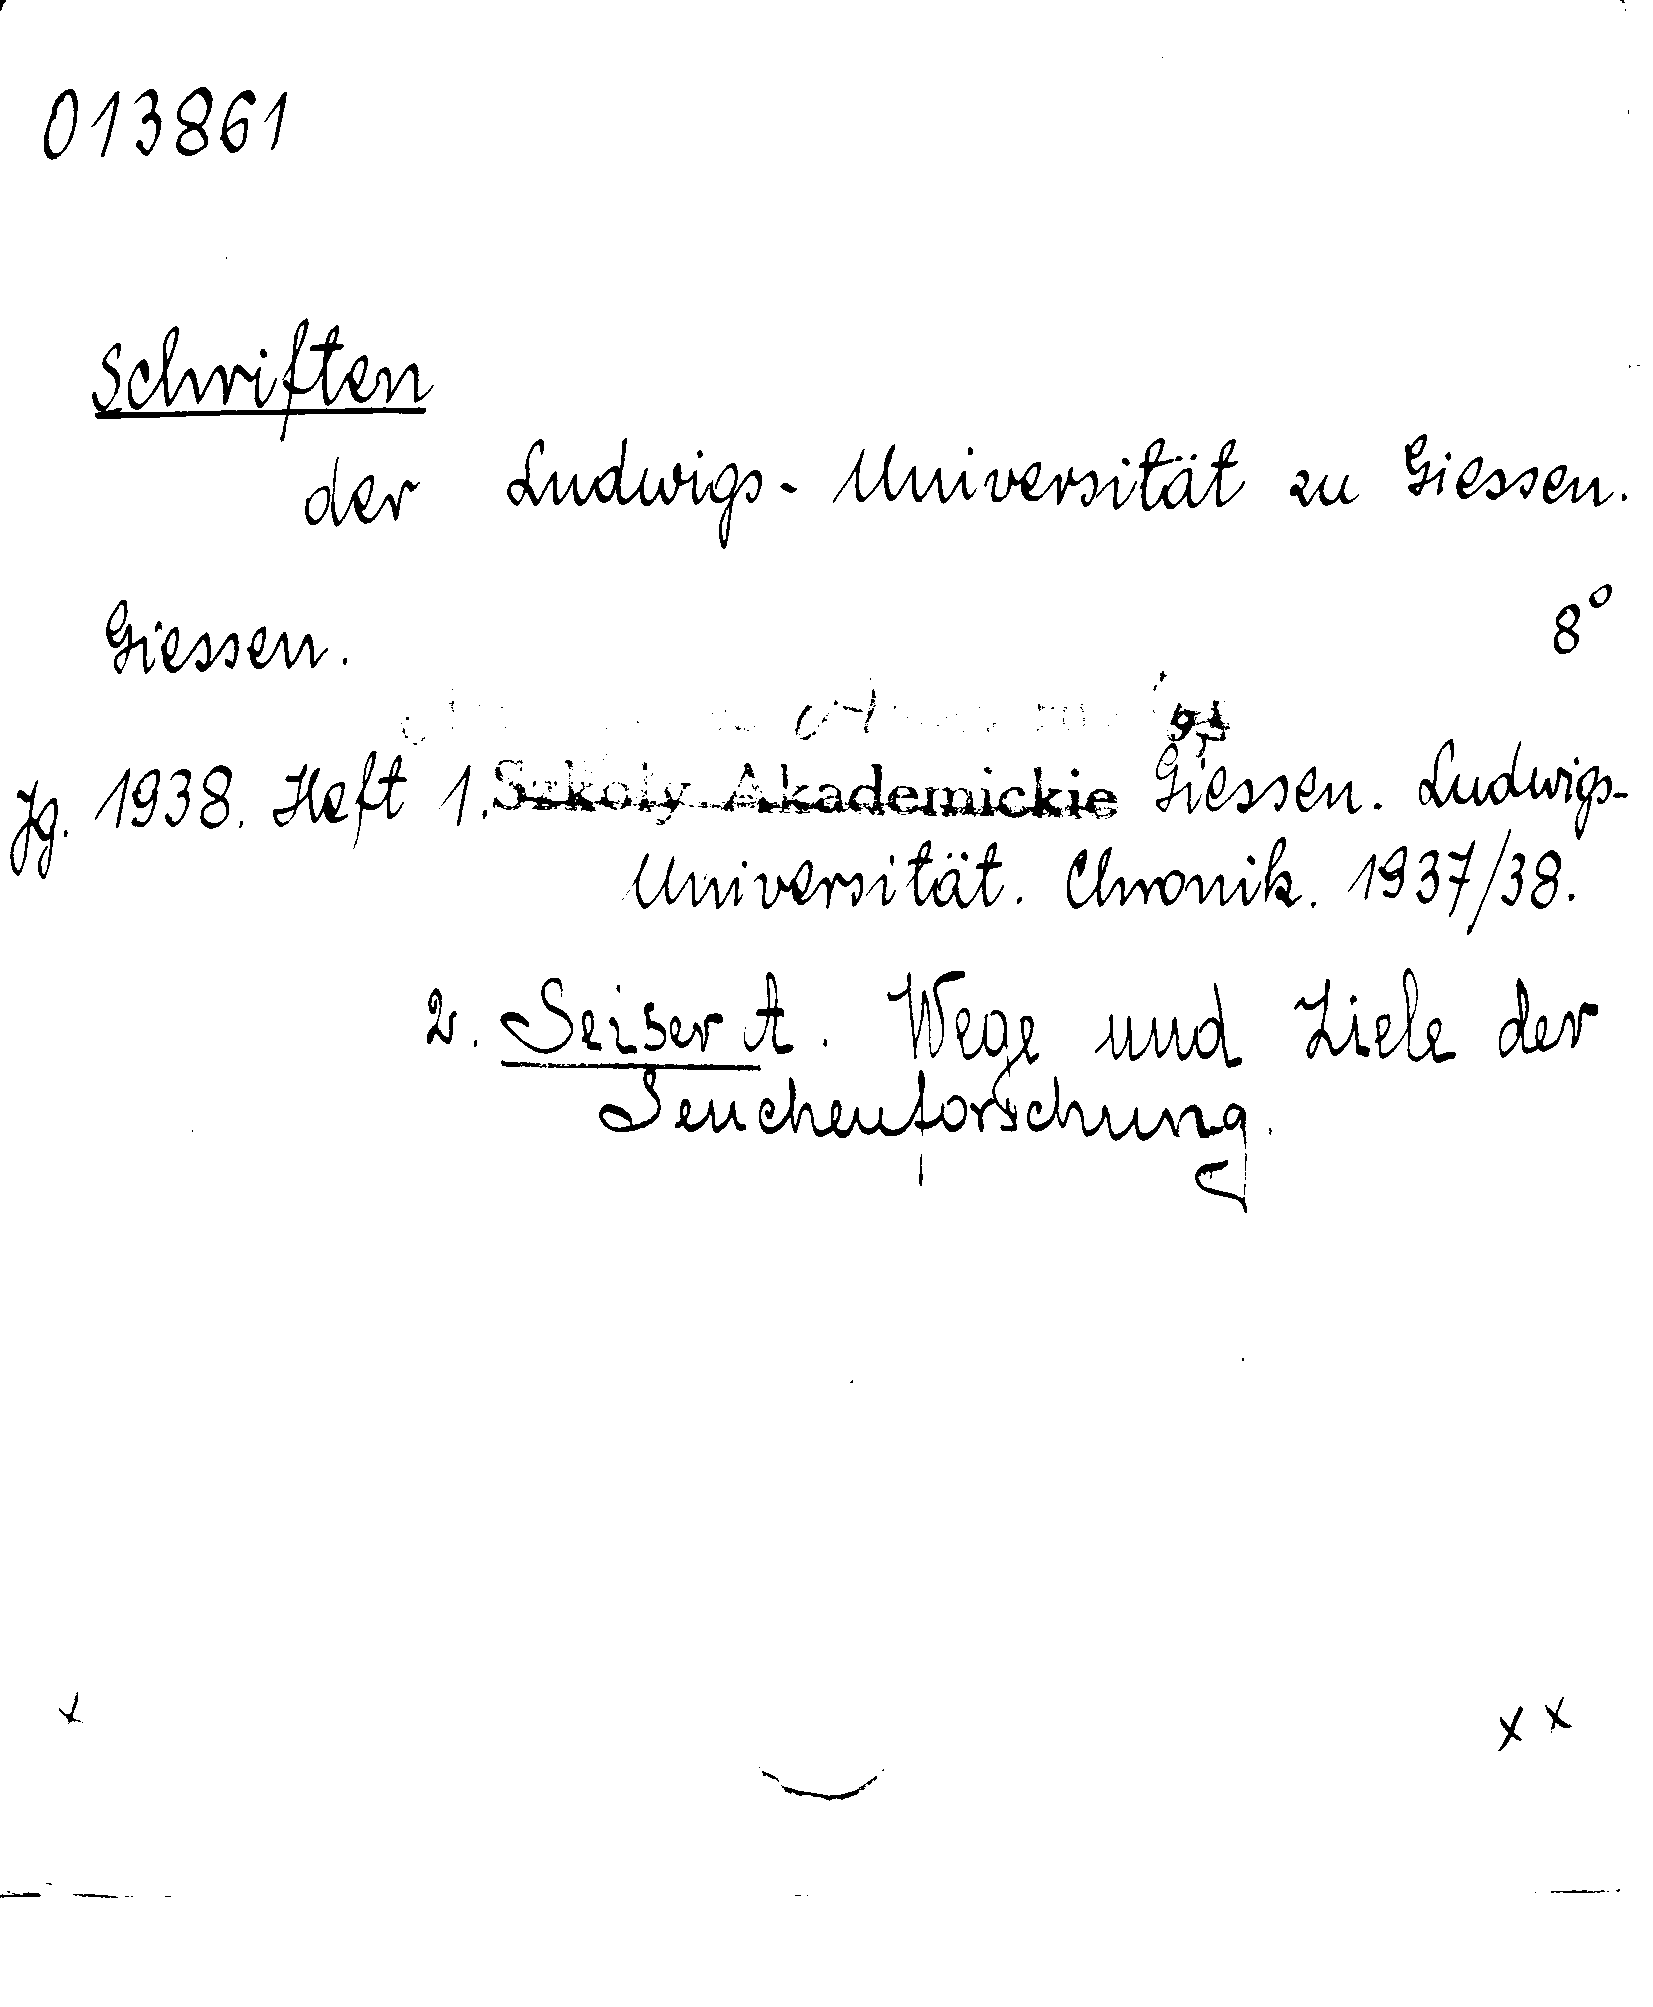 013861
Schriften
der Ludwigs-Universität zu Giessen.
Giessen. 8°
Jg. 1938. Heft 1. Szkoły Akademickie Giessen. Ludwigs-
Universität. Chronik. 1937/38.
2. Seiser A. Wege und Ziele der
Seuchenforschung.
x x x